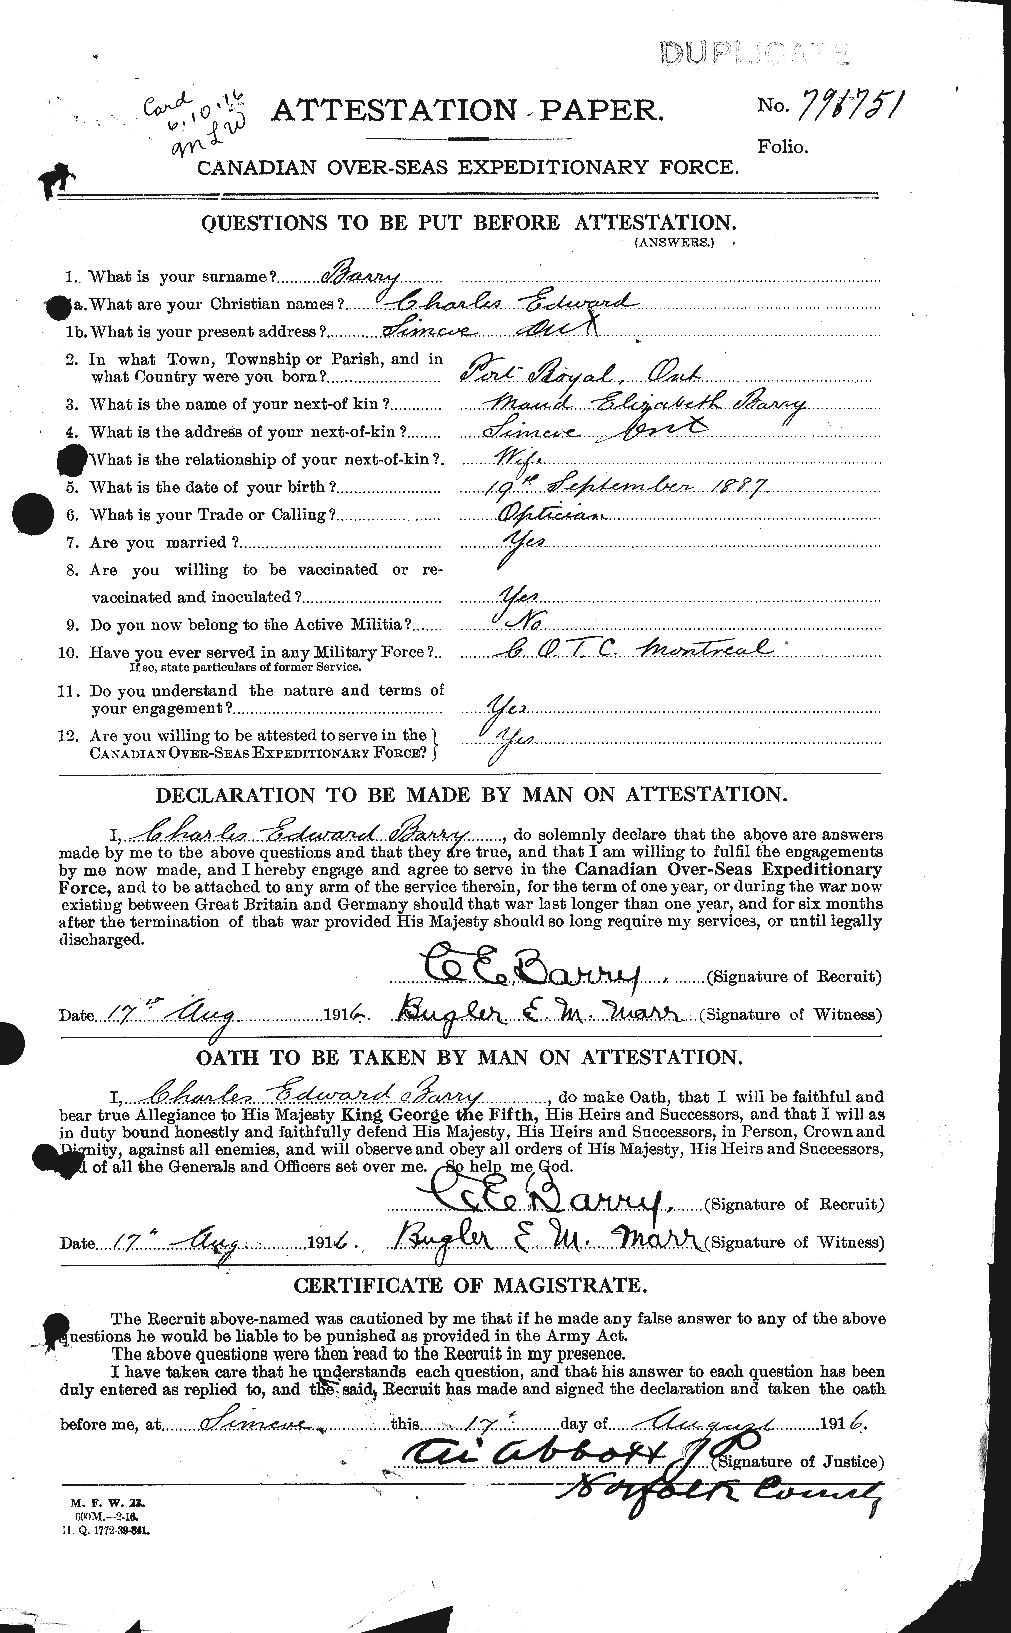 DUPLICATE
Card
6.10.16
ATTESTATION PAPER.
No. 796751
Folio.
CANADIAN OVER-SEAS EXPEDITIONARY FORCE.
QUESTIONS TO BE PUT BEFORE ATTESTATION.
(ANSWERS.)
1. What is your surname? Barry
a. What are your Christian names? Charles Edward
1b. What is your present address? Simcoe Ont
2. In what Town, Township or Parish, and in
what Country were you born? Port Royal, Ont
3. What is the name of your next-of kin? Maud Elizabeth Barry
4. What is the address of your next-of-kin? Simcoe Ont
What is the relationship of your next-of-kin? Wife
5. What is the date of your birth? 19th September 1887
6. What is your Trade or Calling? Optician
7. Are you married? Yes
8. Are you willing to be vaccinated or re-
vaccinated and inoculated? Yes
9. Do you now belong to the Active Militia? No
10. Have you ever served in any Military Force? C.O.T.C. Montreal
If so, state particulars of former Service.
11. Do you understand the nature and terms of
your engagement? Yes
12. Are you willing to be attested to serve in the
CANADIAN OVER-SEAS EXPEDITIONARY FORCE? Yes
DECLARATION TO BE MADE BY MAN ON ATTESTATION.
I, Charles Edward Barry, do solemnly declare that the above are answers
made by me to the above questions and that they are true, and that I am willing to fulfil the engagements
by me now made, and I hereby engage and agree to serve in the Canadian Over-Seas Expeditionary
Force, and to be attached to any arm of the service therein, for the term of one year, or during the war now
existing between Great Britain and Germany should that war last longer than one year, and for six months
after the termination of that war provided His Majesty should so long require my services, or until legally
discharged.
C E Barry. (Signature of Recruit)
Date 17th Aug 1916. Bugler E. M. Marr (Signature of Witness)
OATH TO BE TAKEN BY MAN ON ATTESTATION.
I, Charles Edward Barry, do make Oath, that I will be faithful and
bear true Allegiance to His Majesty King George the Fifth, His Heirs and Successors, and that I will as
in duty bound honestly and faithfully defend His Majesty, His Heirs and Successors, in Person, Crown and
Dignity, against all enemies, and will observe and obey all orders of His Majesty, His Heirs and Successors,
of all the Generals and Officers set over me. So help me God.
C. E. Barry. (Signature of Recruit)
Date 17th Aug 1916. Bugler E. M. Marr (Signature of Witness)
CERTIFICATE OF MAGISTRATE.
The Recruit above-named was cautioned by me that if he made any false answer to any of the above
questions he would be liable to be punished as provided in the Army Act.
The above questions were then read to the Recruit in my presence.
I have taken care that he understands each question, and that his answer to each question has been
duly entered as replied to, and the said Recruit has made and signed the declaration and taken the oath
before me, at Simcoe this 17th day of August 1916.
Abbott JP (Signature of Justice)
Norfolk County
M. F. W. 23.
600M.—2-16.
H. Q. 1772-39-841.